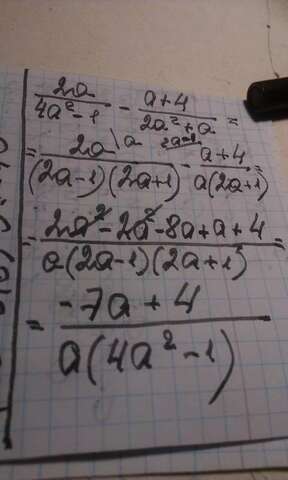 2a/(4a² - 1) - (a+4)/(2a² + a) =
= 2a\a/((2a-1)(2a+1)) - 2a-1/(a+4)/(a(2a+1)) =
= (2a² - 2a² - 8a + a + 4)/(a(2a-1)(2a+1)) =
= (-7a + 4)/(a(4a² - 1))